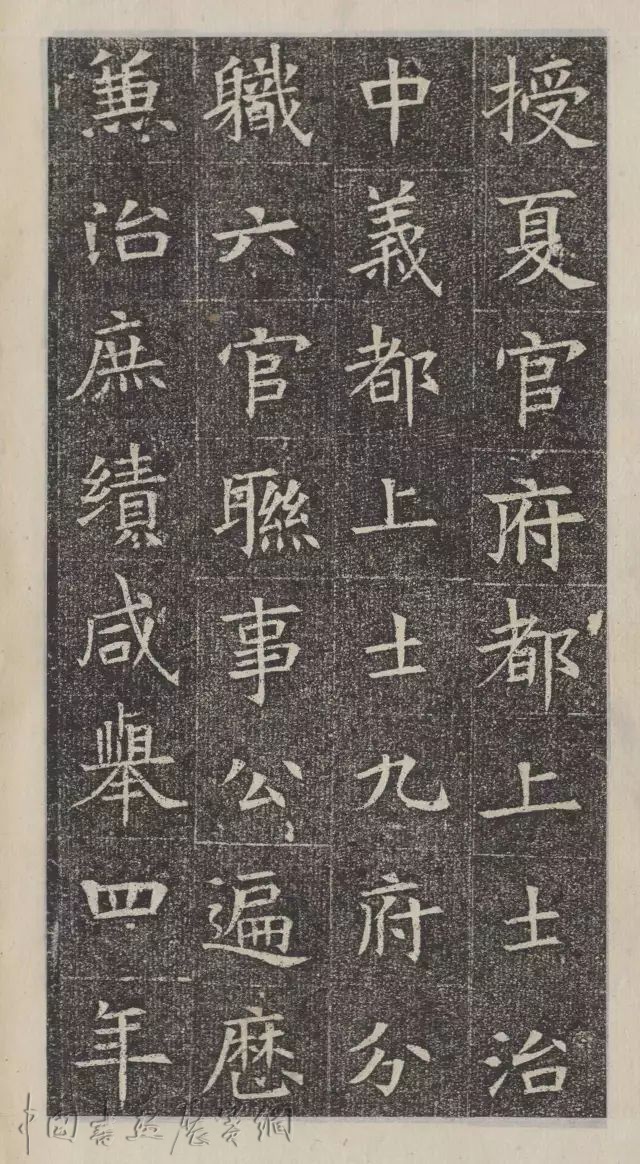 授夏官府都上士治
中義都上士九府分
職六官聯事公遍歷
兼治庶績咸舉四年
中国书画展赏网